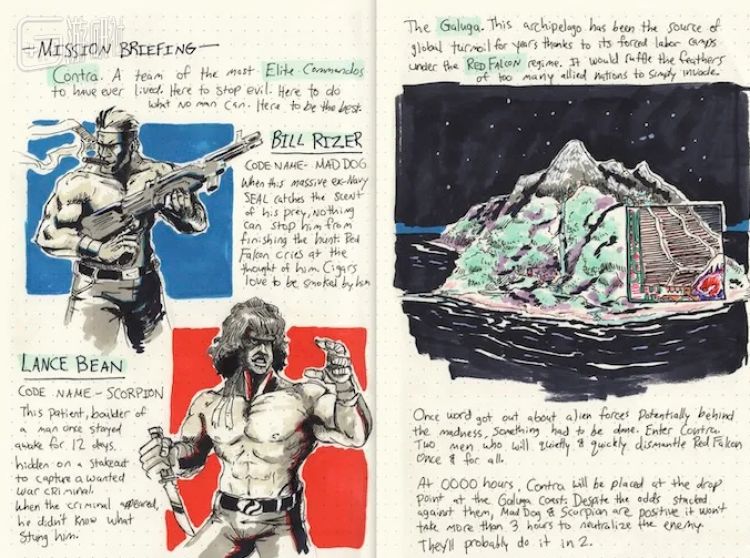 游研社
—MISSION BRIEFING—
Contra. A team of the most Elite Commandos
to have ever lived. Here to stop evil. Here to do
what no man can. Here to be the best.
BILL RIZER
CODE NAME- MAD DOG
When this massive ex-Navy
SEAL catches the scent
of his prey, nothing
can stop him from
finishing the hunt. Red
Falcon cries at the
thought of him. Cigars
love to be smoked by him
LANCE BEAN
CODE NAME - SCORPION
This patient, boulder of
a man once stayed
awake for 12 days.
hidden on a stakeout
to capture a wanted
war criminal.
When the criminal appeared,
he didn't know what
stung him.
The Galuga. This archipelago has been the source of
global turmoil for years thanks to its forced labor camps
under the RED FALCON regime. It would ruffle the feathers
of too many allied nations to simply invade.
Once word got out about alien forces potentially behind
the madness, something had to be done. Enter Contra.
Two men who will quietly & quickly dismantle Red Falcon
once & for all.
At 0000 hours, Contra will be placed at the drop
point at the Galuga Coast. Despite the odds stacked
against them, Mad Dog & Scorpion are positive it won't
take more than 3 hours to neutralize the enemy.
They'll probably do it in 2.